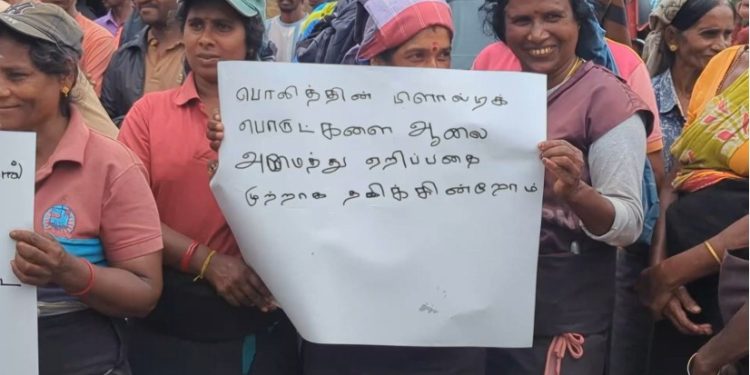 பொலித்தின் பிளாஸ்டிக்
பொருட்களை ஆலை
அமைத்து எறிப்பதை
முற்றாக தகிக்கின்றோம்